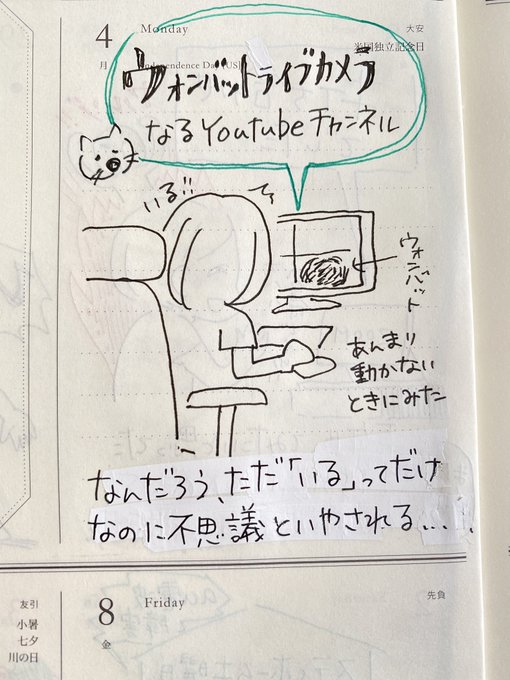 4
月
Monday
大安
米国独立記念日
Independence Day(US
ウォンバットライブカメラ
なるYoutubeチャンネル
いる!!
ウォンバット
あんまり
動かない
ときにみた
なんだろう、ただ「いる」ってだけ
なのに不思議といやされる....
友引
小暑
七夕
川の日
8
金
Friday
先負